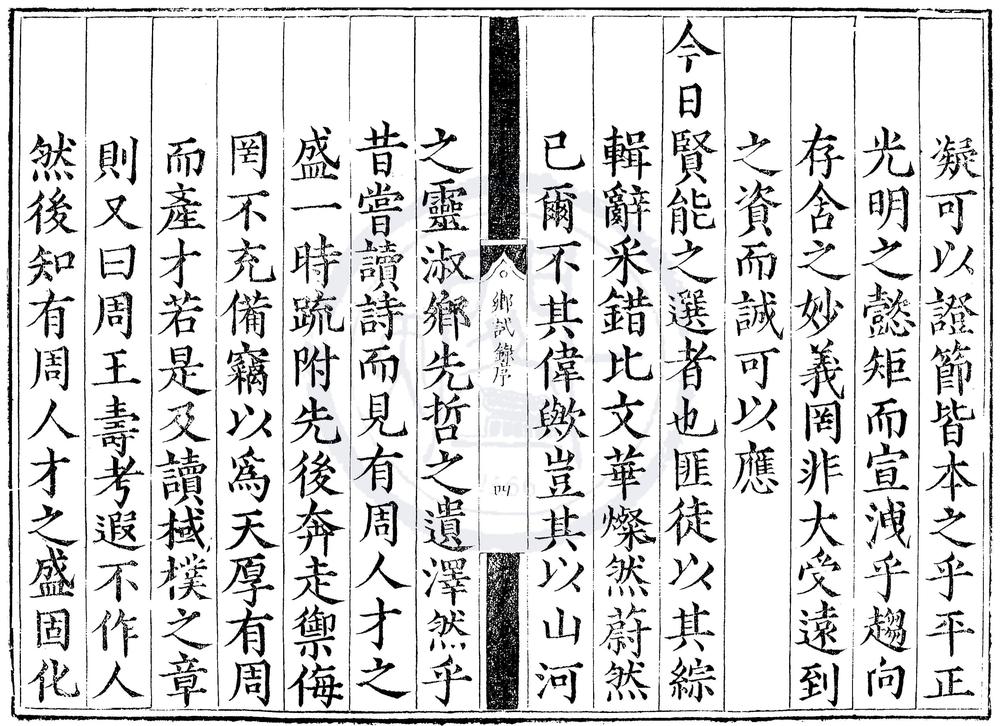 凝可以證節皆本之乎平正
光明之懿矩而宣洩乎趨向
存舍之妙義罔非大受遠到
之資而誠可以應
今日賢能之選者也匪徒以其綜
輯辭采錯比文華燦然蔚然
已爾不其偉歟豈其以山河
鄉試錄序
四
之靈淑鄉先哲之遺澤然乎
昔嘗讀詩而見有周人才之
盛一時疏附先後奔走禦侮
罔不充備竊以為天厚有周
而產才若是及讀棫樸之章
則又曰周王壽考遐不作人
然後知有周人才之盛固化